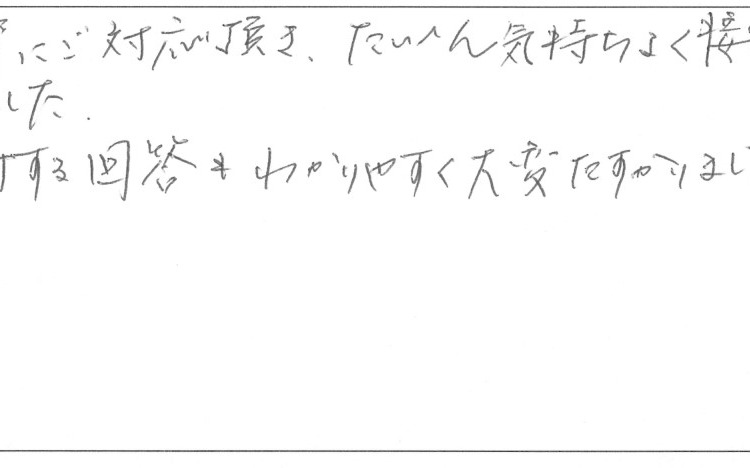 にご対応頂き、たいへん気持ちよく接
した.
する回答もわかりやすく大変たすかりまし